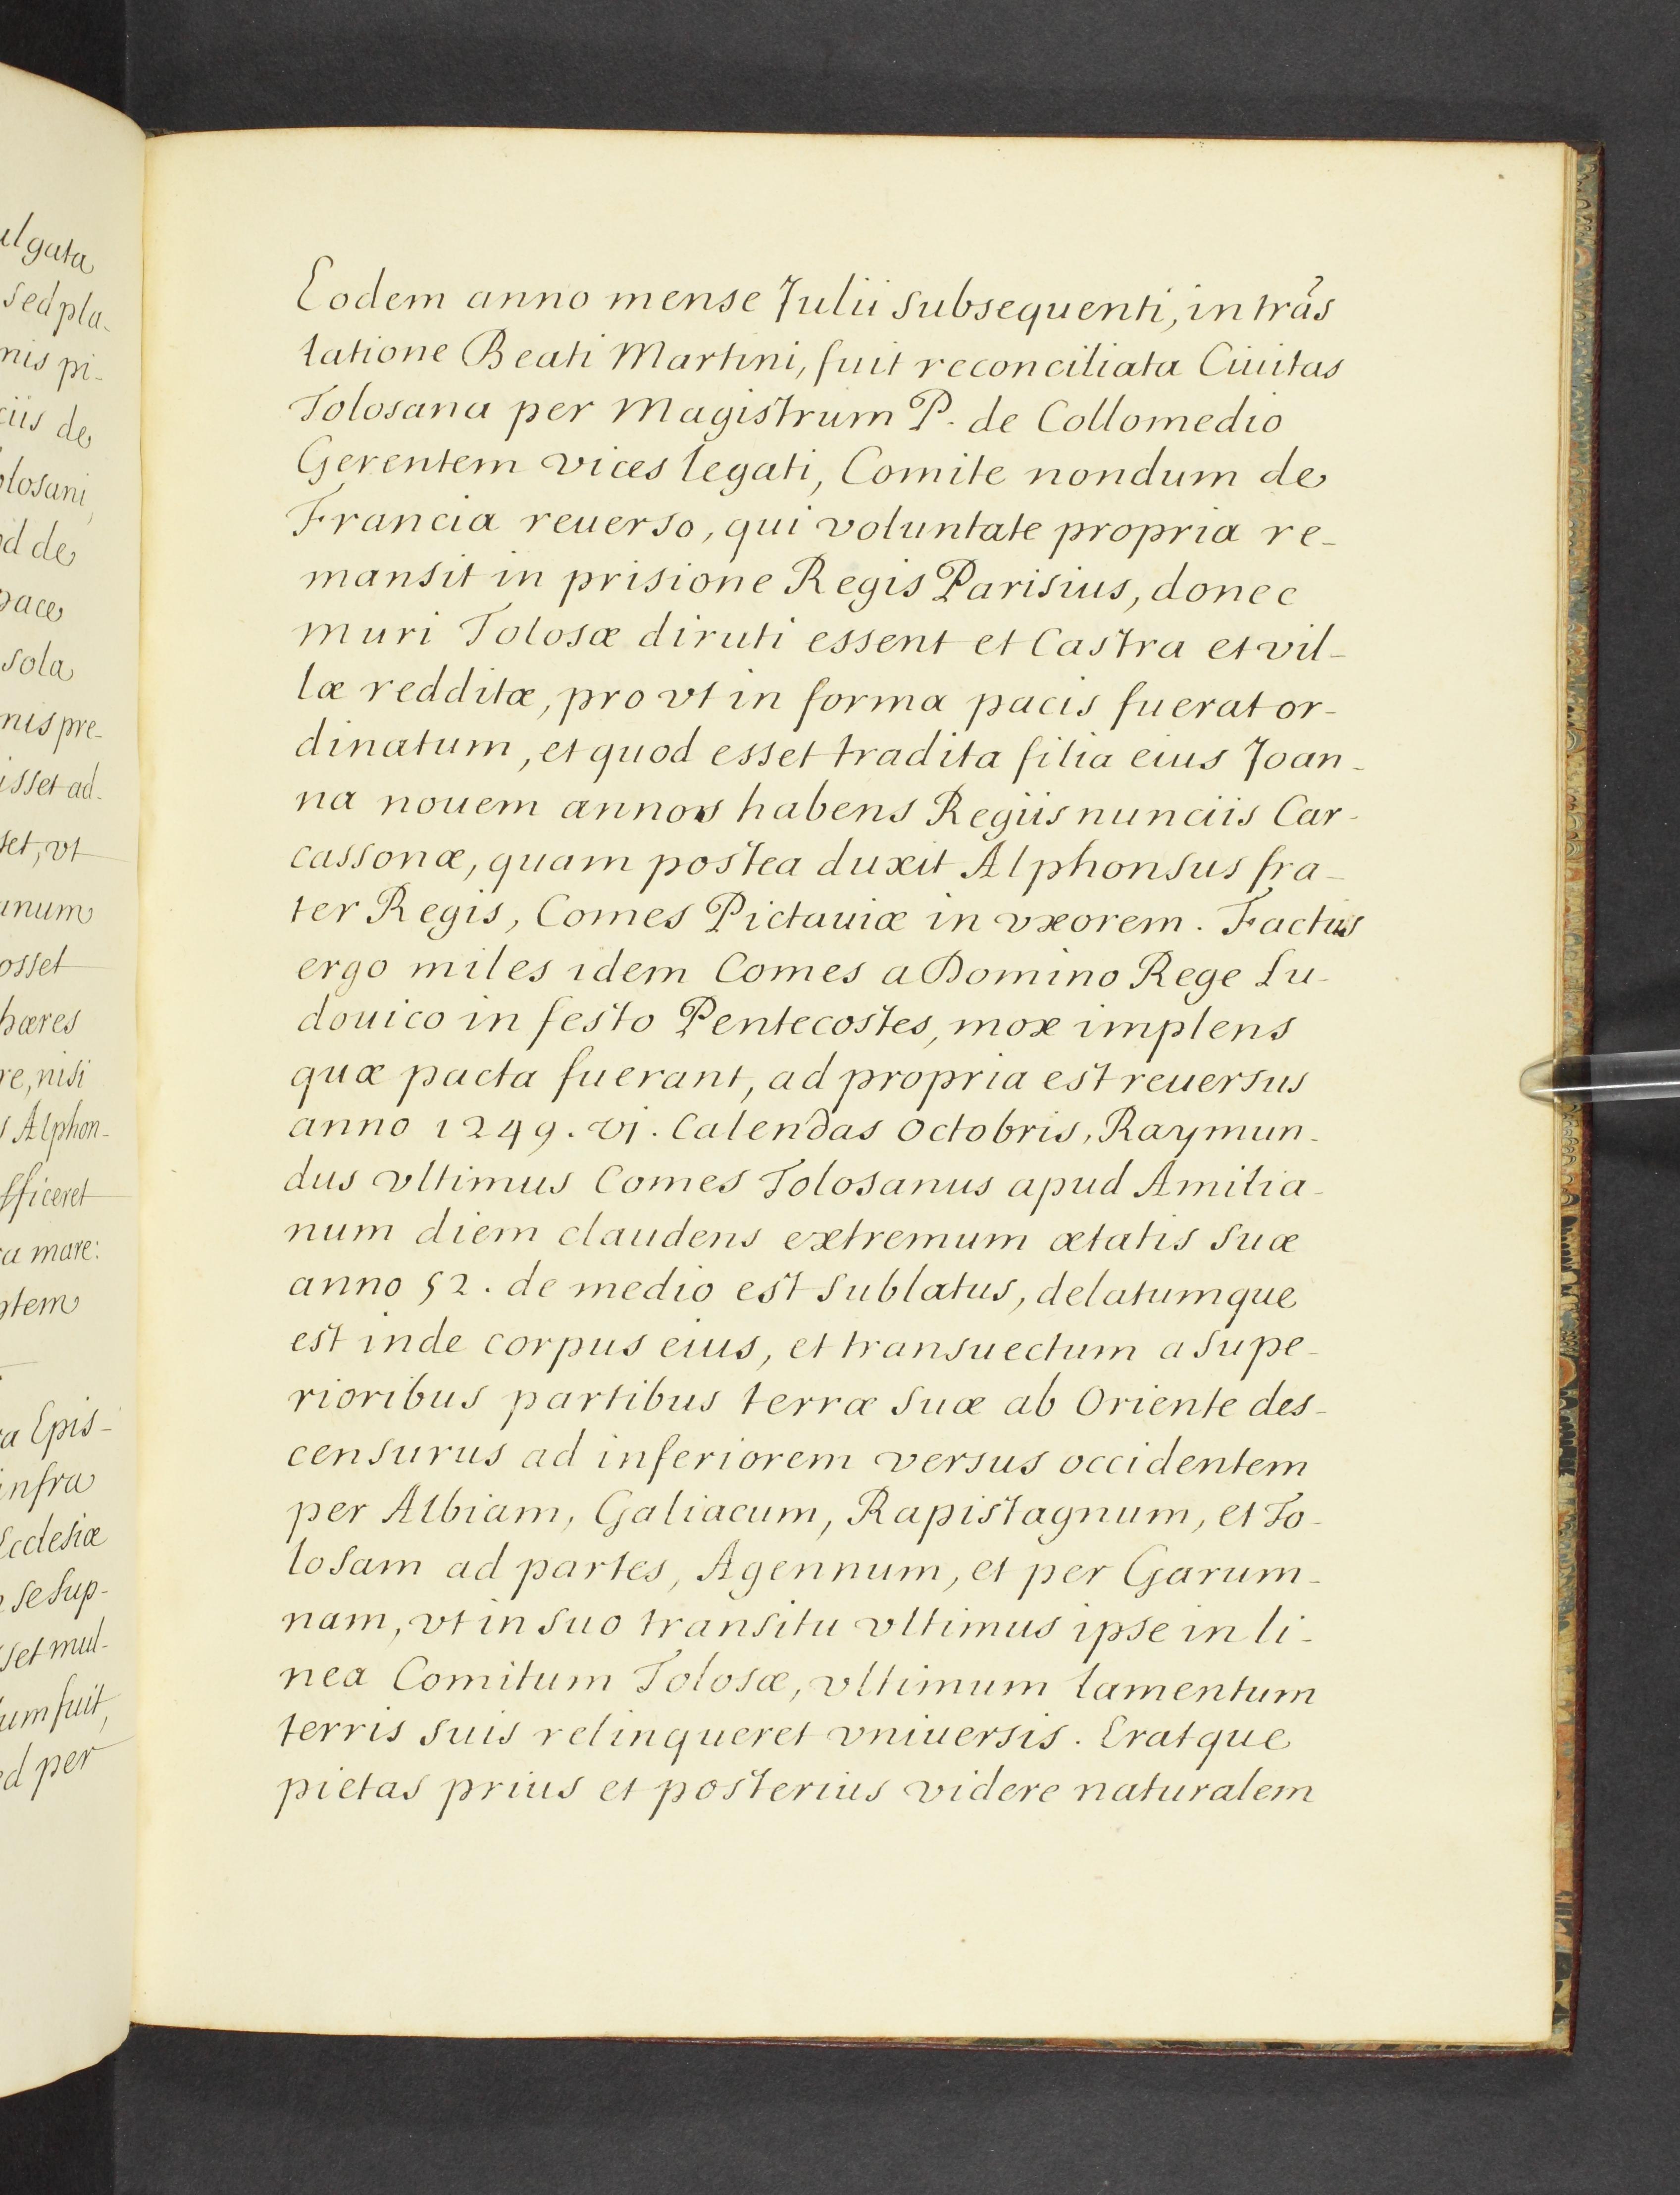 ulgata
sed pla-
nis pi-
ciis de
olosani,
d de
pace
sola
nis pre-
isset ad-
set, vt
anum
osset
hæres
re, nisi
s Alphon-
fficeret
ra mare:
ra Epis-
infra
Ecclesiæ
se sup-
sset mul-
um fuit,
ed per
Eodem anno mense Julii subsequenti, in trãs
latione Beati Martini, fuit reconciliata Ciuitas
Tolosana per Magistrum P. de Collomedio
Gerentem vices legati, Comite nondum de
Francia reuerso, qui voluntate propria re-
mansit in prisione Regis Parisius, donec
muri Tolosæ diruti essent et Castra et vil-
læ redditæ, pro vt in forma pacis fuerat or-
dinatum, et quod esset tradita filia eius Joan-
na nouem annos habens Regiis nunciis Car-
cassonæ, quam postea duxit Alphonsus fra-
ter Regis, Comes Pictauiæ in vxorem. Factus
ergo miles idem Comes a Domino Rege Lu-
douico in festo Pentecostes, mox implens
quæ pacta fuerant, ad propria est reuersus
anno 1249. vj. Calendas Octobris, Raymun-
dus vltimus Comes Tolosanus apud Amilia-
num diem claudens extremum ætatis suæ
anno 52. de medio est sublatus, delatumque
est inde corpus eius, et transuectum a supe-
rioribus partibus terræ suæ ab Oriente des-
censurus ad inferiorem versus occidentem
per Albiam, Galiacum, Rapistagnum, et To-
losam ad partes, Agennum, et per Garum-
nam, vt in suo transitu vltimus ipse in li-
nea Comitum Tolosæ, vltimum lamentum
terris suis relinqueret vniuersis. Eratque
pietas prius et posterius videre naturalem